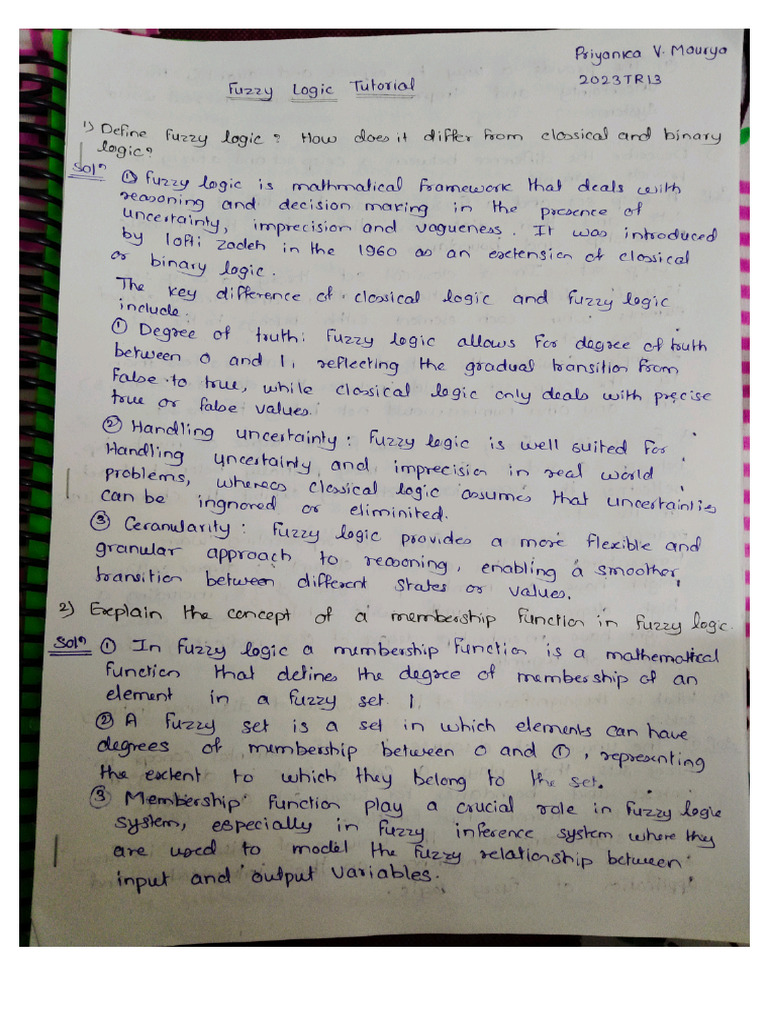 Priyanka V. Maurya
2023TR13
Fuzzy Logic Tutorial
1) Define fuzzy logic? How does it differ from classical and binary
logic?
Solⁿ ① Fuzzy logic is mathmatical framework that deals with
reasoning and decision making in the presence of
uncertainty, imprecision and vagueness. It was introduced
by lofti zadeh in the 1960 as an extension of classical
or binary logic.
The key difference of classical logic and fuzzy logic
include:
① Degree of truth: Fuzzy logic allows for degree of truth
between 0 and 1, reflecting the gradual transition from
false to true, while classical logic only deals with precise
true or false values.
② Handling uncertainty: Fuzzy logic is well suited for
Handling uncertainty and imprecision in real world
problems, whereas classical logic assumes that uncertainties
can be ingnored or eliminited.
③ Ceranularity: Fuzzy logic provides a more flexible and
granular approach to reasoning, enabling a smoother
transition between different states or values.
2) Explain the concept of a membership function in fuzzy logic.
Solⁿ ① In fuzzy logic a membership function is a mathematical
function that defines the degree of membership of an
element in a fuzzy set 1.
② A fuzzy set is a set in which elements can have
degrees of membership between 0 and ①, representing
the extent to which they belong to the set.
③ Membership function play a crucial role in fuzzy logic
system, especially in fuzzy inference system where they
are used to model the fuzzy relationship between
input and output variables.